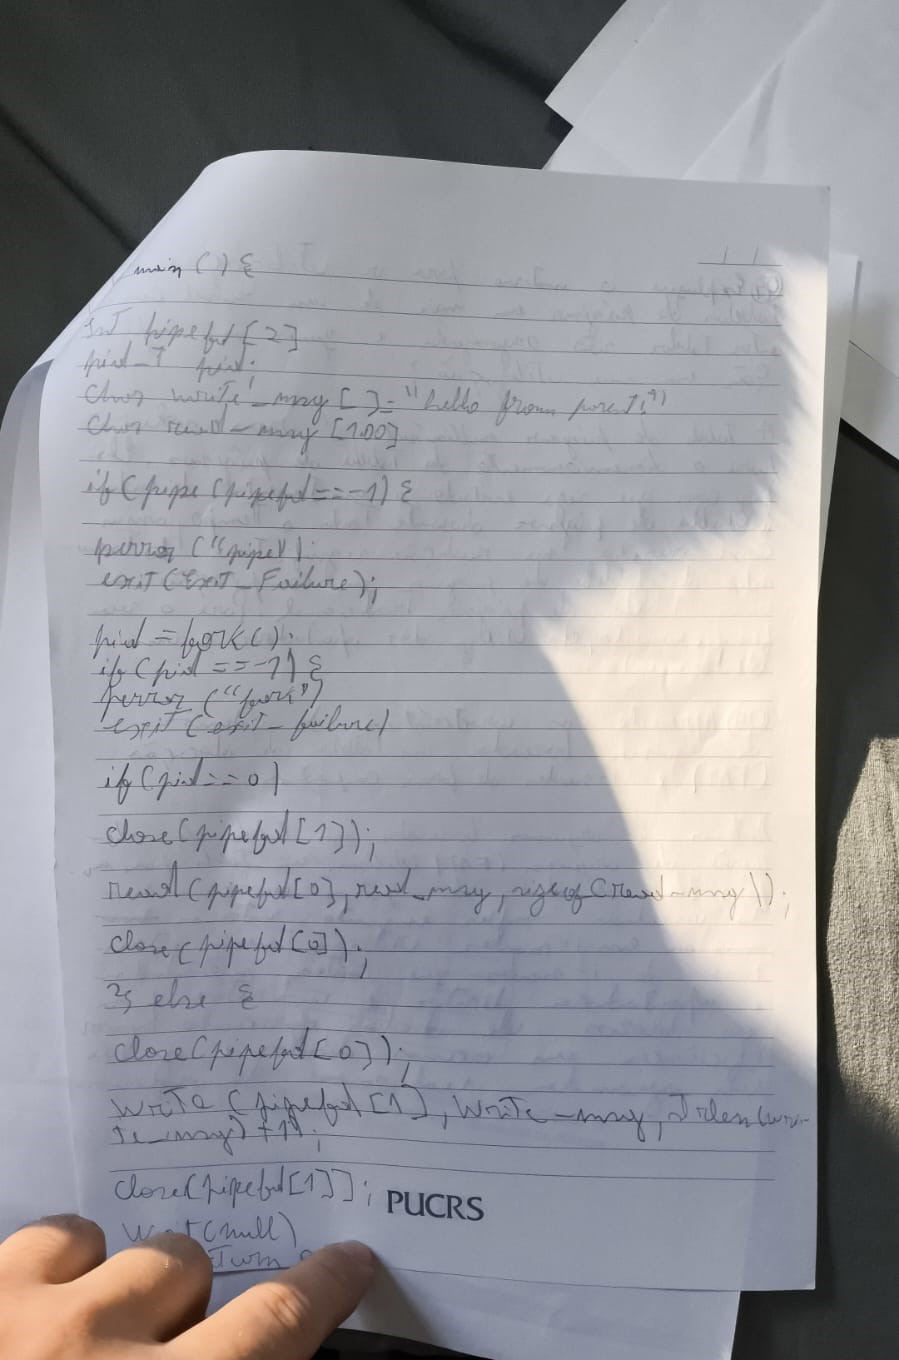 main () {
Int pipefd [2]
pid_T pid;
Char write_msg [ ]= "hello from parent!"
Char read_msg [100]
if (pipe (pipefd == -1) {
perror ("pipe");
exit (Exit_Failure);
pid = fork();
if (pid == -1) {
perror ("fork")
exit (exit_failure)
if (pid == 0)
close (pipefd [1]);
read (pipefd [0], read_msg, sizeof (read_msg));
close (pipefd [0]);
} else {
close (pipefd [0]);
write (pipefd [1], write_msg, strlen (wri-
te_msg) + 1);
close (pipefd [1]];
PUCRS
Wait (null)